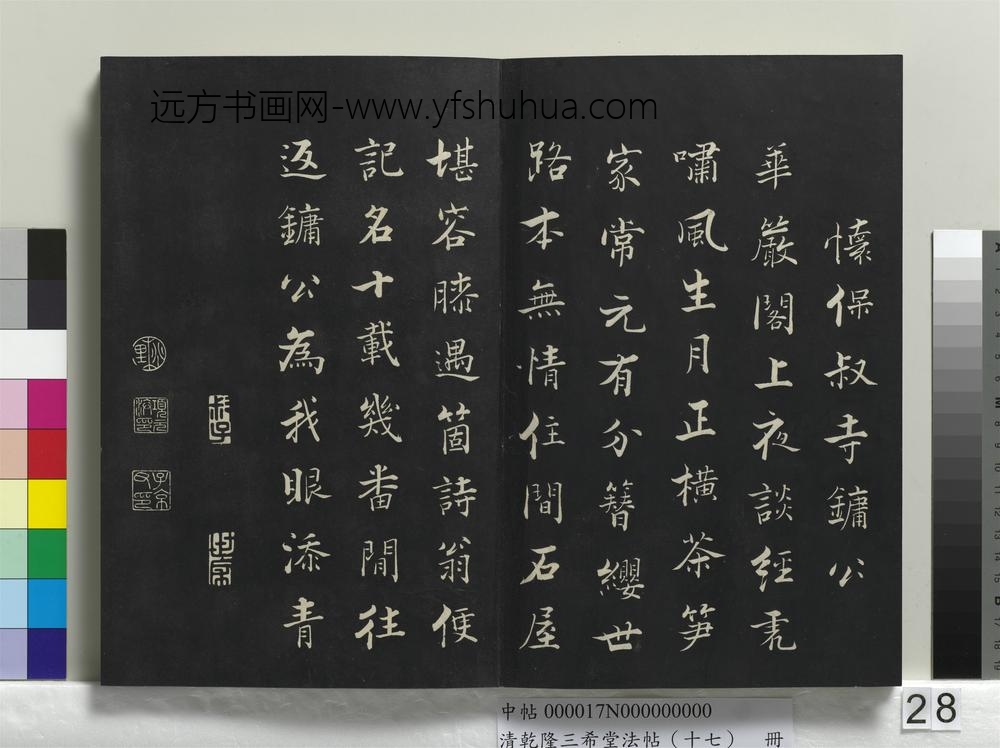 远方书画网-www.yfshuhua.com
懷保叔寺鏞公
華嚴閣上夜談經禿
嘯風生月正橫茶笋
家常元有分簪纓世
路本無情住間石屋
堪容膝遇箇詩翁便
記名十載幾畨間往
返鏞公為我眼添青
28
中帖 000017N000000000
清乾隆三希堂法帖（十七） 冊